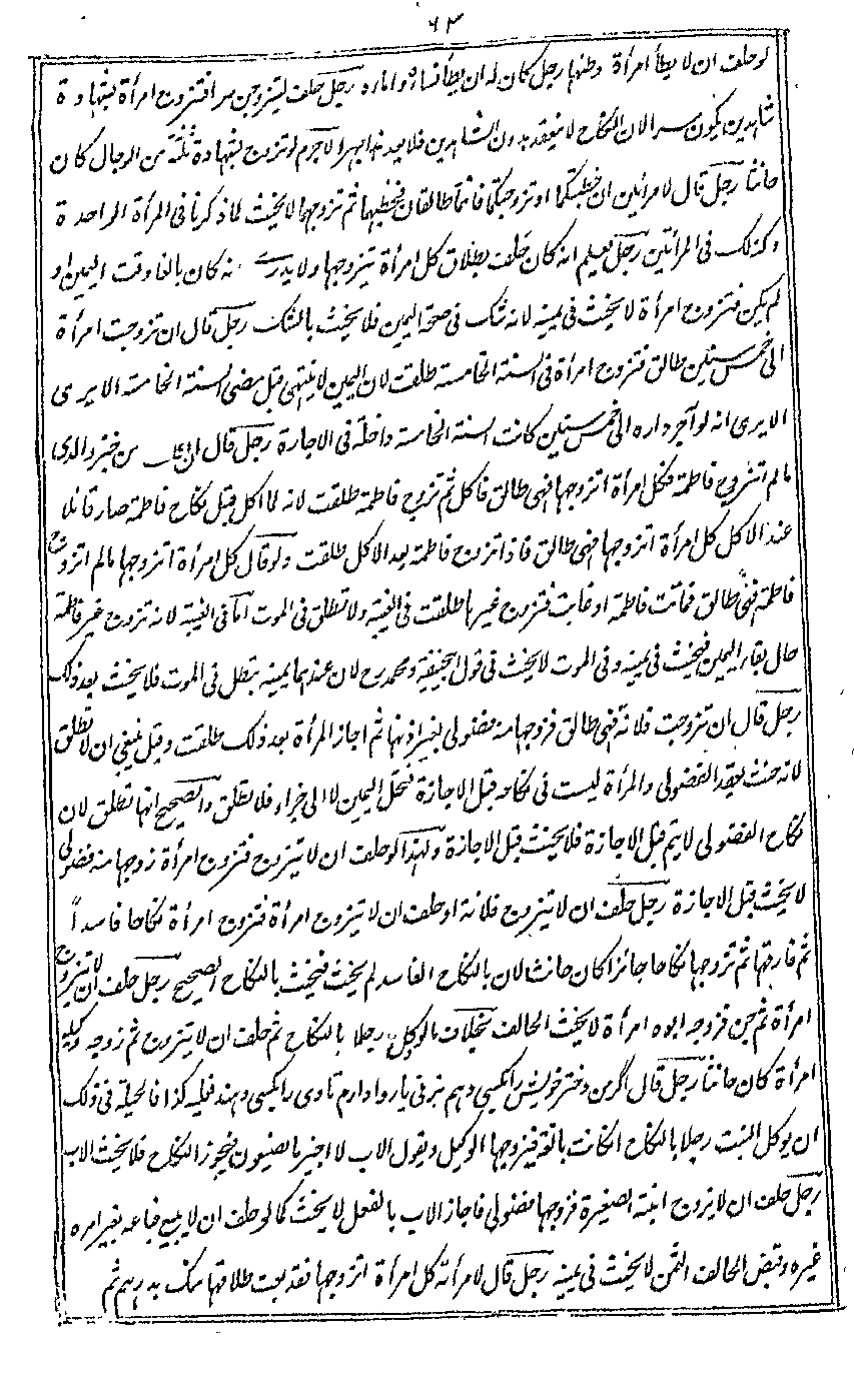 ٦٣
لو حلف ان لا يطأ امرأة وطئها رجل كان له ان يطأ نساءه واماءه رجل حلف ليتزوجن سرا فتزوج امرأة بشهادة
شاهدين يكون سرا لان النكاح لا ينعقد بدون الشاهدين فلا يصير جهرا لاجرم لو تزوج بشهادة ثلثة من الرجال كان
حانثا رجل قال لامرأتين ان خطبتكما او تزوجتكما فانتما طالقان فخطبهما ثم تزوجهما لا يحنث لما ذكرنا فى المرأة الواحدة
وكذلك فى المرأتين رجل يعلم انه كان حلف بطلاق كل امرأة يتزوجها ولا يدرى انه كان بالغا وقت اليمين او
لم يكن فتزوج امرأة لا يحنث فى يمينه لانه شك فى صحة اليمين فلا يحنث بالشك رجل قال ان تزوجت امرأة
الى خمس سنين طالق فتزوج امرأة فى السنة الخامسة طلقت لان اليمين لا ينتهى قبل مضى السنة الخامسة الا يرى
الا يرى انه لو آجر داره الى خمس سنين كانت السنة الخامسة داخلة فى الاجارة رجل قال ان من خبز والدى
مالم اتزوج فاطمة فكل امرأة اتزوجها فهى طالق فاكل ثم تزوج فاطمة طلقت لانه لما اكل قبل نكاح فاطمة صار قائلا
عند الاكل كل امرأة اتزوجها فهى طالق فاذا تزوج فاطمة بعد الاكل طلقت ولو قال كل امرأة اتزوجها مالم اتزوج
فاطمة فهى طالق فماتت فاطمة او غابت فتزوج غيرها طلقت فى الغيبة ولا تطلق فى الموت اما فى الغيبة لانه تزوج غير فاطمة
حال بقاء اليمين فيحنث فى يمينه وفى الموت لا يحنث فى قول ابيحنيفة ومحمد رح لان عندهما يمينه تبطل فى الموت فلا يحنث بعد ذلك
رجل قال ان تزوجت فلانة فهى طالق فزوجها منه فضولى بغير اذنها ثم اجاز المرأة بعد ذلك طلقت وقيل ينبغى ان لا تطلق
لانه حنث بعقد الفضولى والمرأة ليست فى نكاحه قبل الاجازة فتنحل اليمين لا الى جزاء فلا تطلق والصحيح انها تطلق لان
نكاح الفضولى لا يتم قبل الاجازة فلا يحنث قبل الاجازة ولهذا لو حلف ان لا يتزوج فتزوج امرأة زوجها منه فضولى
لا يحنث قبل الاجازة رجل حلف ان لا يتزوج فلانة او حلف ان لا يتزوج امرأة فتزوج امرأة نكاحا فاسداً
ثم فارقها ثم تزوجها نكاحا جائزا كان حانثا لان بالنكاح الفاسد لم يحنث فيحنث بالنكاح الصحيح رجل حلف ان لا يتزوج
امرأة ثم جن فزوجه ابوه امرأة لا يحنث الحالف بخلاف ما لو وكل رجلا بالنكاح ثم حلف ان لا يتزوج ثم زوجه وكيله
امرأة كان حانثا رجل قال اگر من دختر خویش را بکسی دهم بزنی یا روا دارم تا وی را بکسی دهند فعليه كذا فالحيلة فى ذلك
ان يوكل البنت رجلا بالنكاح ان كانت بالغة فيزوجها الوكيل ويقول الاب لا اجيز ما تصنعون فيجوز النكاح فلا يحنث الاب
رجل حلف ان لا يزوج ابنته الصغيرة فزوجها فضولى فاجاز الاب بالفعل لا يحنث كما لو حلف ان لا يبيع فباعه بغير امره
غيره وقبض الحالف الثمن لا يحنث فى يمينه رجل قال لامرأته كل امرأة اتزوجها فقد بعت طلاقها منك بدرهم ثم